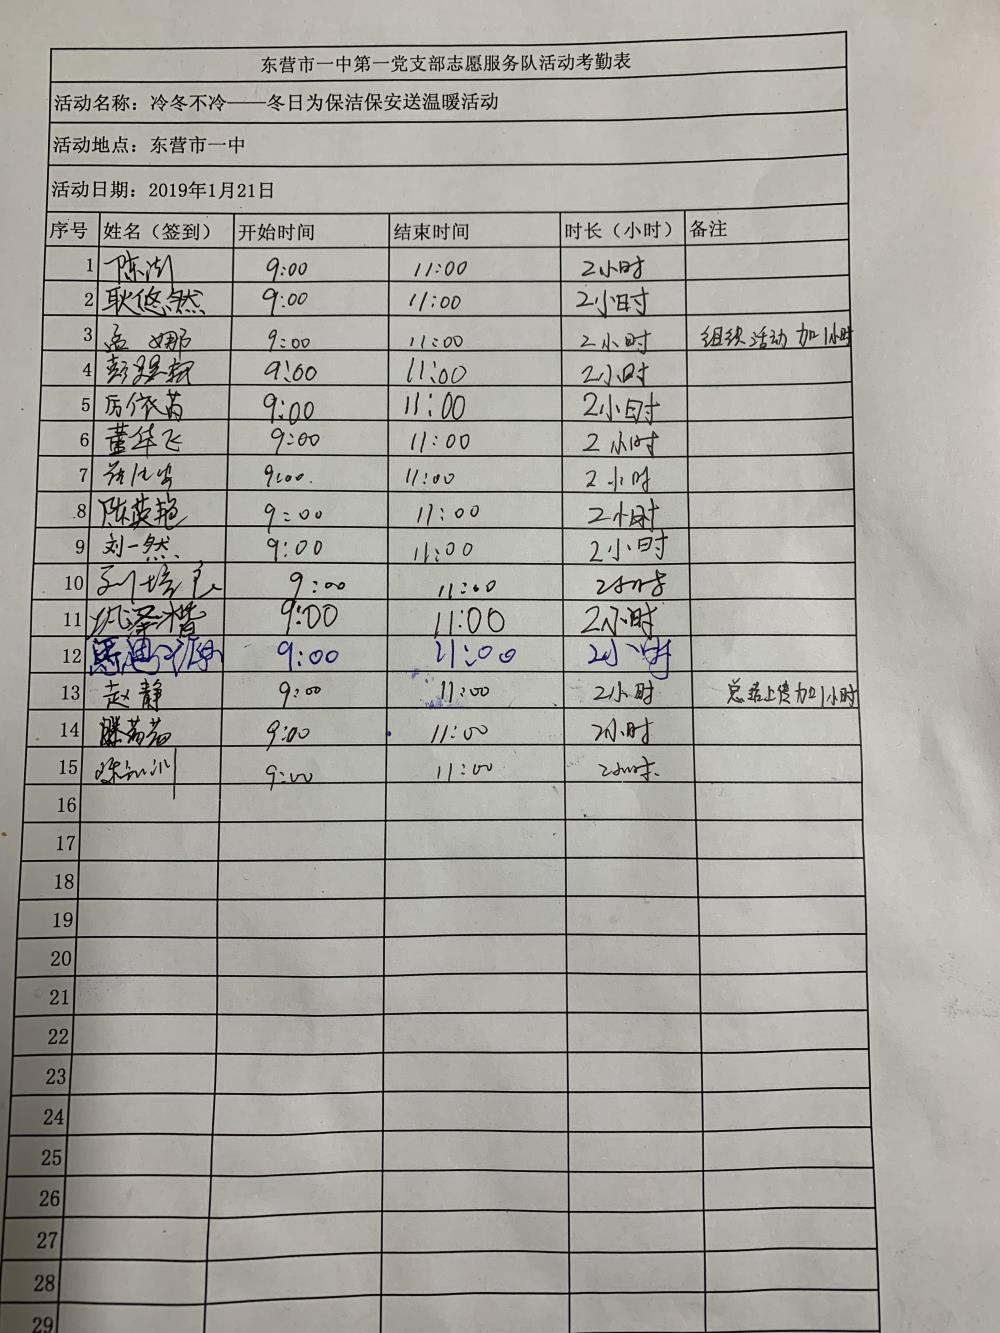 东营市一中第一党支部志愿服务队活动考勤表
活动名称：冷冬不冷——冬日为保洁保安送温暖活动
活动地点：东营市一中
活动日期：2019年1月21日
序号 姓名（签到） 开始时间 结束时间 时长（小时） 备注
1 陈澍 9:00 11:00 2小时
2 耿悠然 9:00 11:00 2小时
3 孟娜 9:00 11:00 2小时 组织活动加1小时
4 9:00 11:00 2小时
5 厉依芮 9:00 11:00 2小时
6 董华飞 9:00 11:00 2小时
7 9:00. 11:00 2小时
8 陈英艳 9:00 11:00 2小时
9 刘一然 9:00 11:00 2小时
10 9:00 11:00 2小时
11 9:00 11:00 2小时
12 9:00 11:00 2小时
13 赵静 9:00 11:00 2小时 总结上传加1小时
14 滕茗茗 9:00 11:00 2小时
15 9:00 11:00 2小时.
16
17
18
19
20
21
22
23
24
25
26
27
28
29